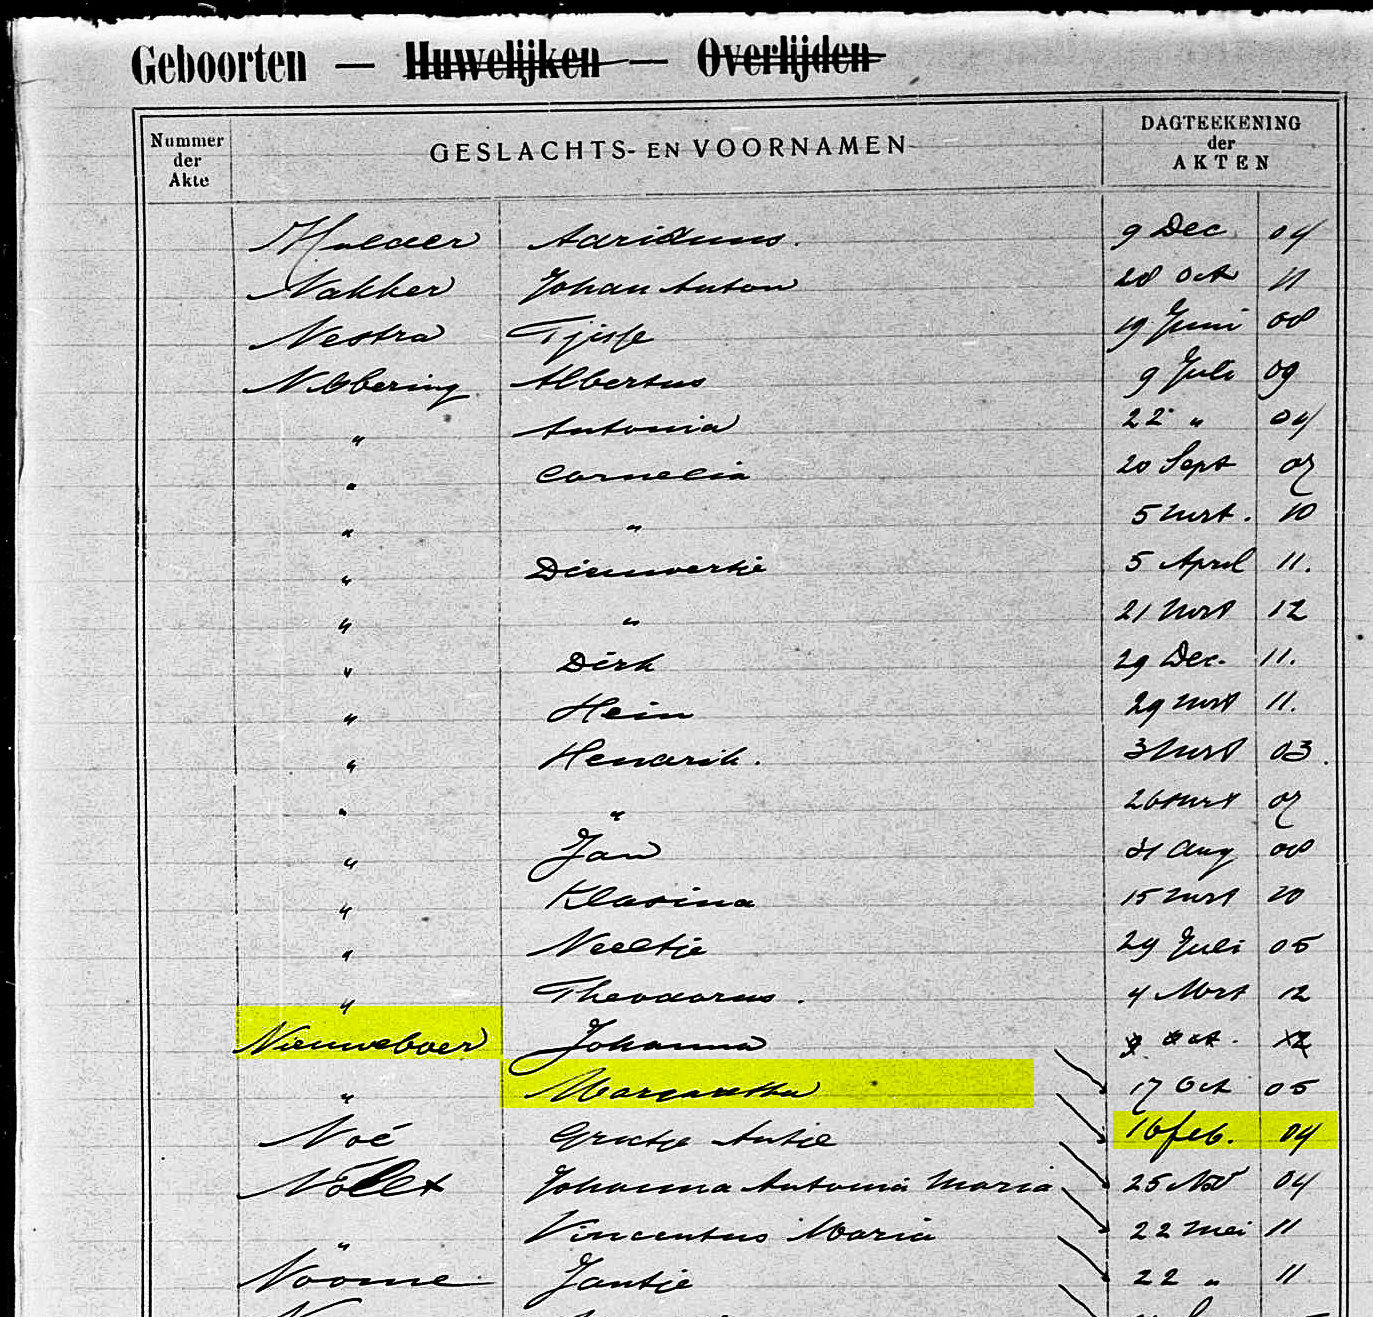 Geboorten — Huwelijken — Overlijden
Nummer der Akte
GESLACHTS- EN VOORNAMEN
DAGTEEKENING der AKTEN
Mulder Adrianus. 9 Dec. 04
Nakker Johan Anton 28 Oct 11
Nestra Tjisse 19 Juni 08
Nibbering Albertus 9 Juli 09
" Antonia 22 " 04
" Cornelia 20 Sept 07
" " 5 Mrt. 10
" Dieuwertje 5 April 11.
" " 21 Mrt 12
" Dirk 29 Dec. 11.
" Hein 29 Mrt 11.
" Hendrik. 3 Mrt 03.
" " 26 Mrt 07
" Jan 31 Aug 08
" Klasina 15 Mrt 10
" Neeltje 29 Juli 05
" Theodorus. 4 Mrt 12
Nieuweboer Johanna
" Margaretha 17 Oct 05
Noé Grietje Antje 16 feb. 04
Nöllt Johanna Antonia Maria 25 Nov 04
" Vincentus Maria 22 Mei 11
Nöome Jantje 22 " 11